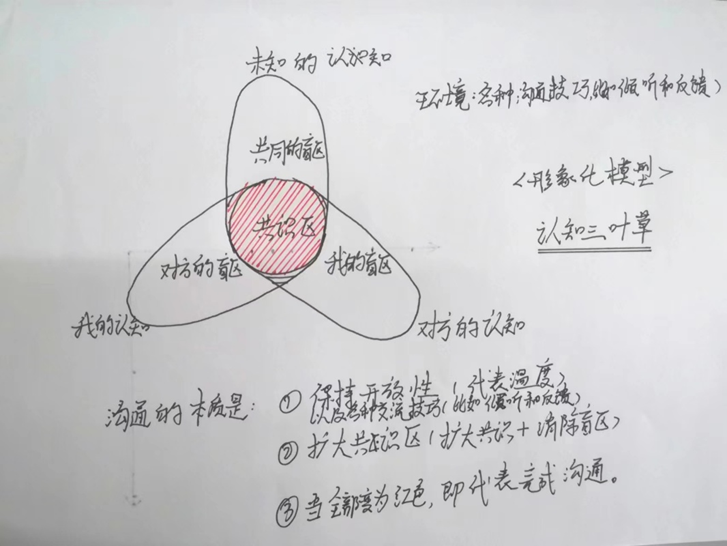 未知的认识知
环境:各种沟通技巧,(比如倾听和反馈)
共同的盲区
<形象化模型>
认知三叶草
共识区
对方的盲区
我的盲区
我的认知
对方的认知
沟通的本质是:
① 保持开放性(代表温度)
以及各种交流技巧(比如倾听和反馈)
② 扩大共识区(扩大共识+消除盲区)
③ 当全部变为红色,即代表完成沟通。